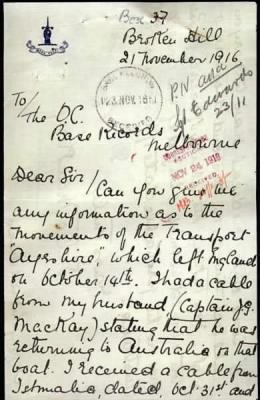 Box 37
Broken Hill
21 November 1916
BASE RECORDS
23 NOV. 1916
RECEIVED
P.N. and
Edwards
23/11
To/
The O.C.
Base Records
Melbourne
NOV 24 1916
Dear Sir/ Can you give me
any information as to the
movements of the Transport
"Ayrshire", which left England
on October 14th. I had a cable
from my husband (Captain J.G.
MacKay) stating that he was
returning to Australia on that
boat. I received a cable from
Ishmalia, dated, Oct. 31st and